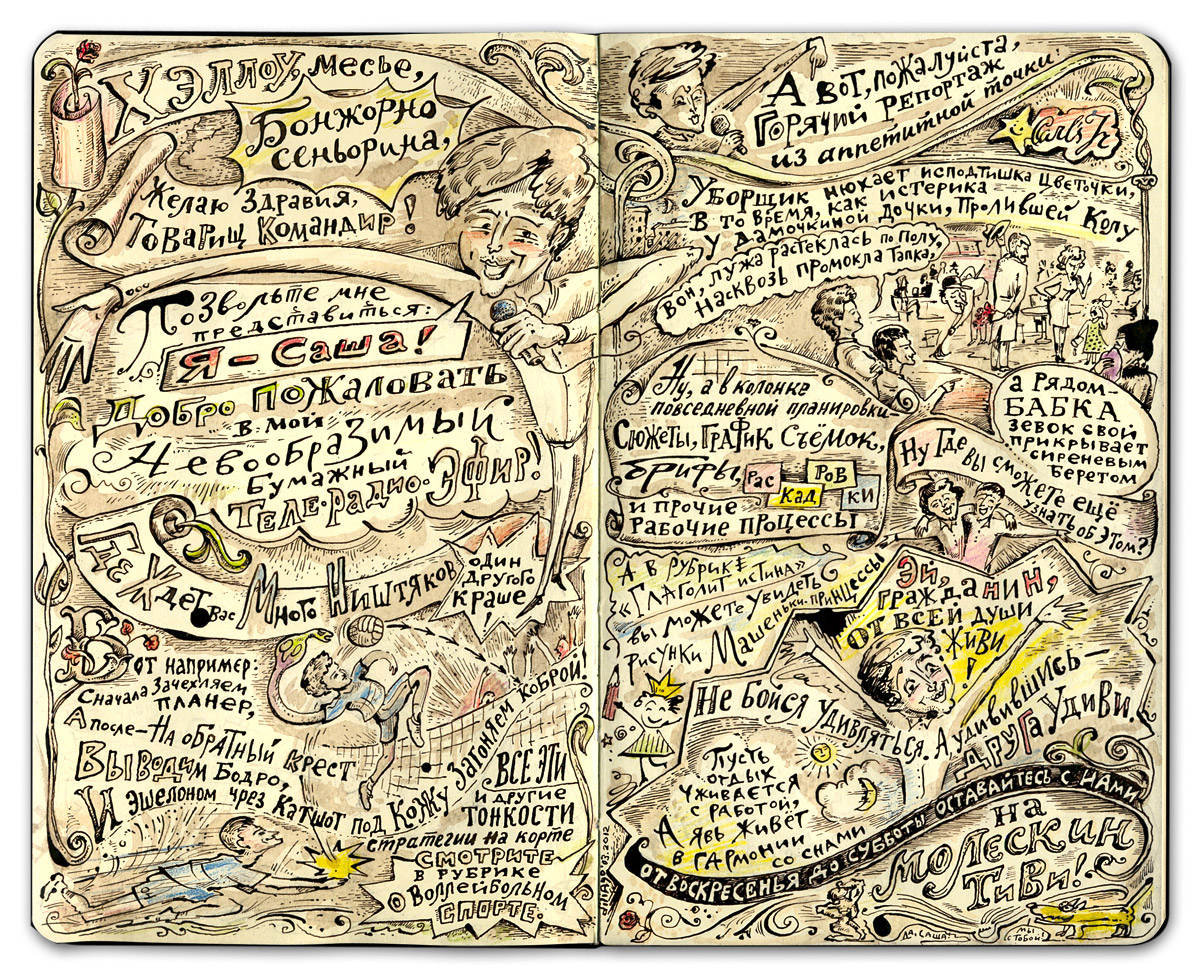 Хэллоу, месье,
Бонжорно
сеньорина,
Желаю Здравия,
Товарищ Командир!
Позвольте мне
представиться:
Я – Саша!
Добро пожаловать
в мой
Невообразимый
бумажный
Теле-радио-Эфир!
Где Ждёт вас Много Ништяков
один
другого
краше!
Вот например:
Сначала Зачехляем
планер,
А после – На обратный крест
Выводим Бодро,
И эшелоном чрез катшот под Кожу Загоняем коброй!
Все эти
и другие
тонкости
стратегии на корте
смотрите
в рубрике
о Воллейбольном
спорте.
А вот, пожалуйста,
Горячий репортаж
из аппетитной точки:
Уборщик нюхает исподтишка Цветочки,
В то время, как истерика
у дамочкиной Дочки, Пролившей Колу
Вон, лужа растеклась по Полу,
Насквозь промокла Тапка,
а рядом –
Бабка
зевок свой
прикрывает
сиреневым
беретом
Ну, а в колонке
повседневной планировки
Сюжеты, График Съёмок,
Брифы, Рас
кад
ров
ки
и прочие
Рабочие процессы
Ну Где вы сможете ещё
узнать об этом?
А в рубрике
«Глаголит истина»
вы можете увидеть
рисунки Машеньки-принцессы
Эй,
гражданин,
от всей души
живи!
Не бойся удивляться. А удивившись –
Друга удиви.
Пусть
отдых
уживается
с работой,
А явь живёт
в гармонии
со снами
От воскресенья до субботы оставайтесь с нами
на
Молескин
ТиВи!
Да, Саша!
мы
с тобой!